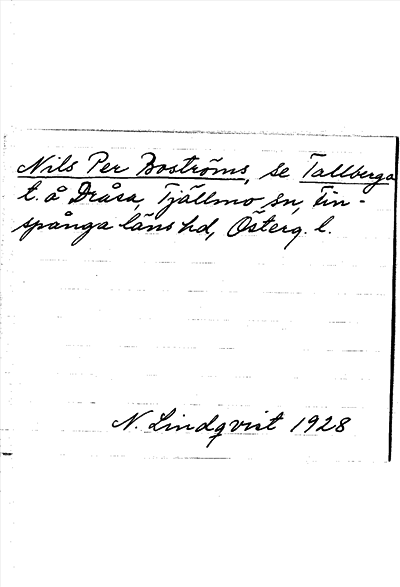 Nils Per Boströms, se Tallberga
t. å Dråsa, Tjällmo sn, Fin-
spånga läns hd, Österg. l.
N. Lindqvist 1928